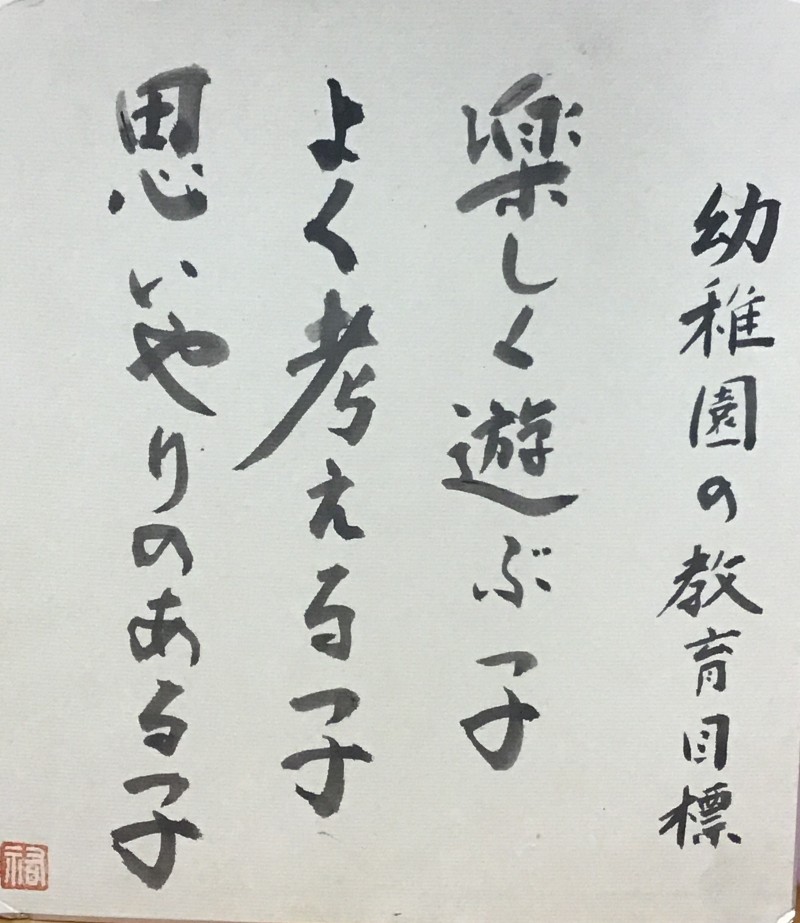 幼稚園の教育目標
楽しく遊ぶ子
よく考える子
思いやりのある子